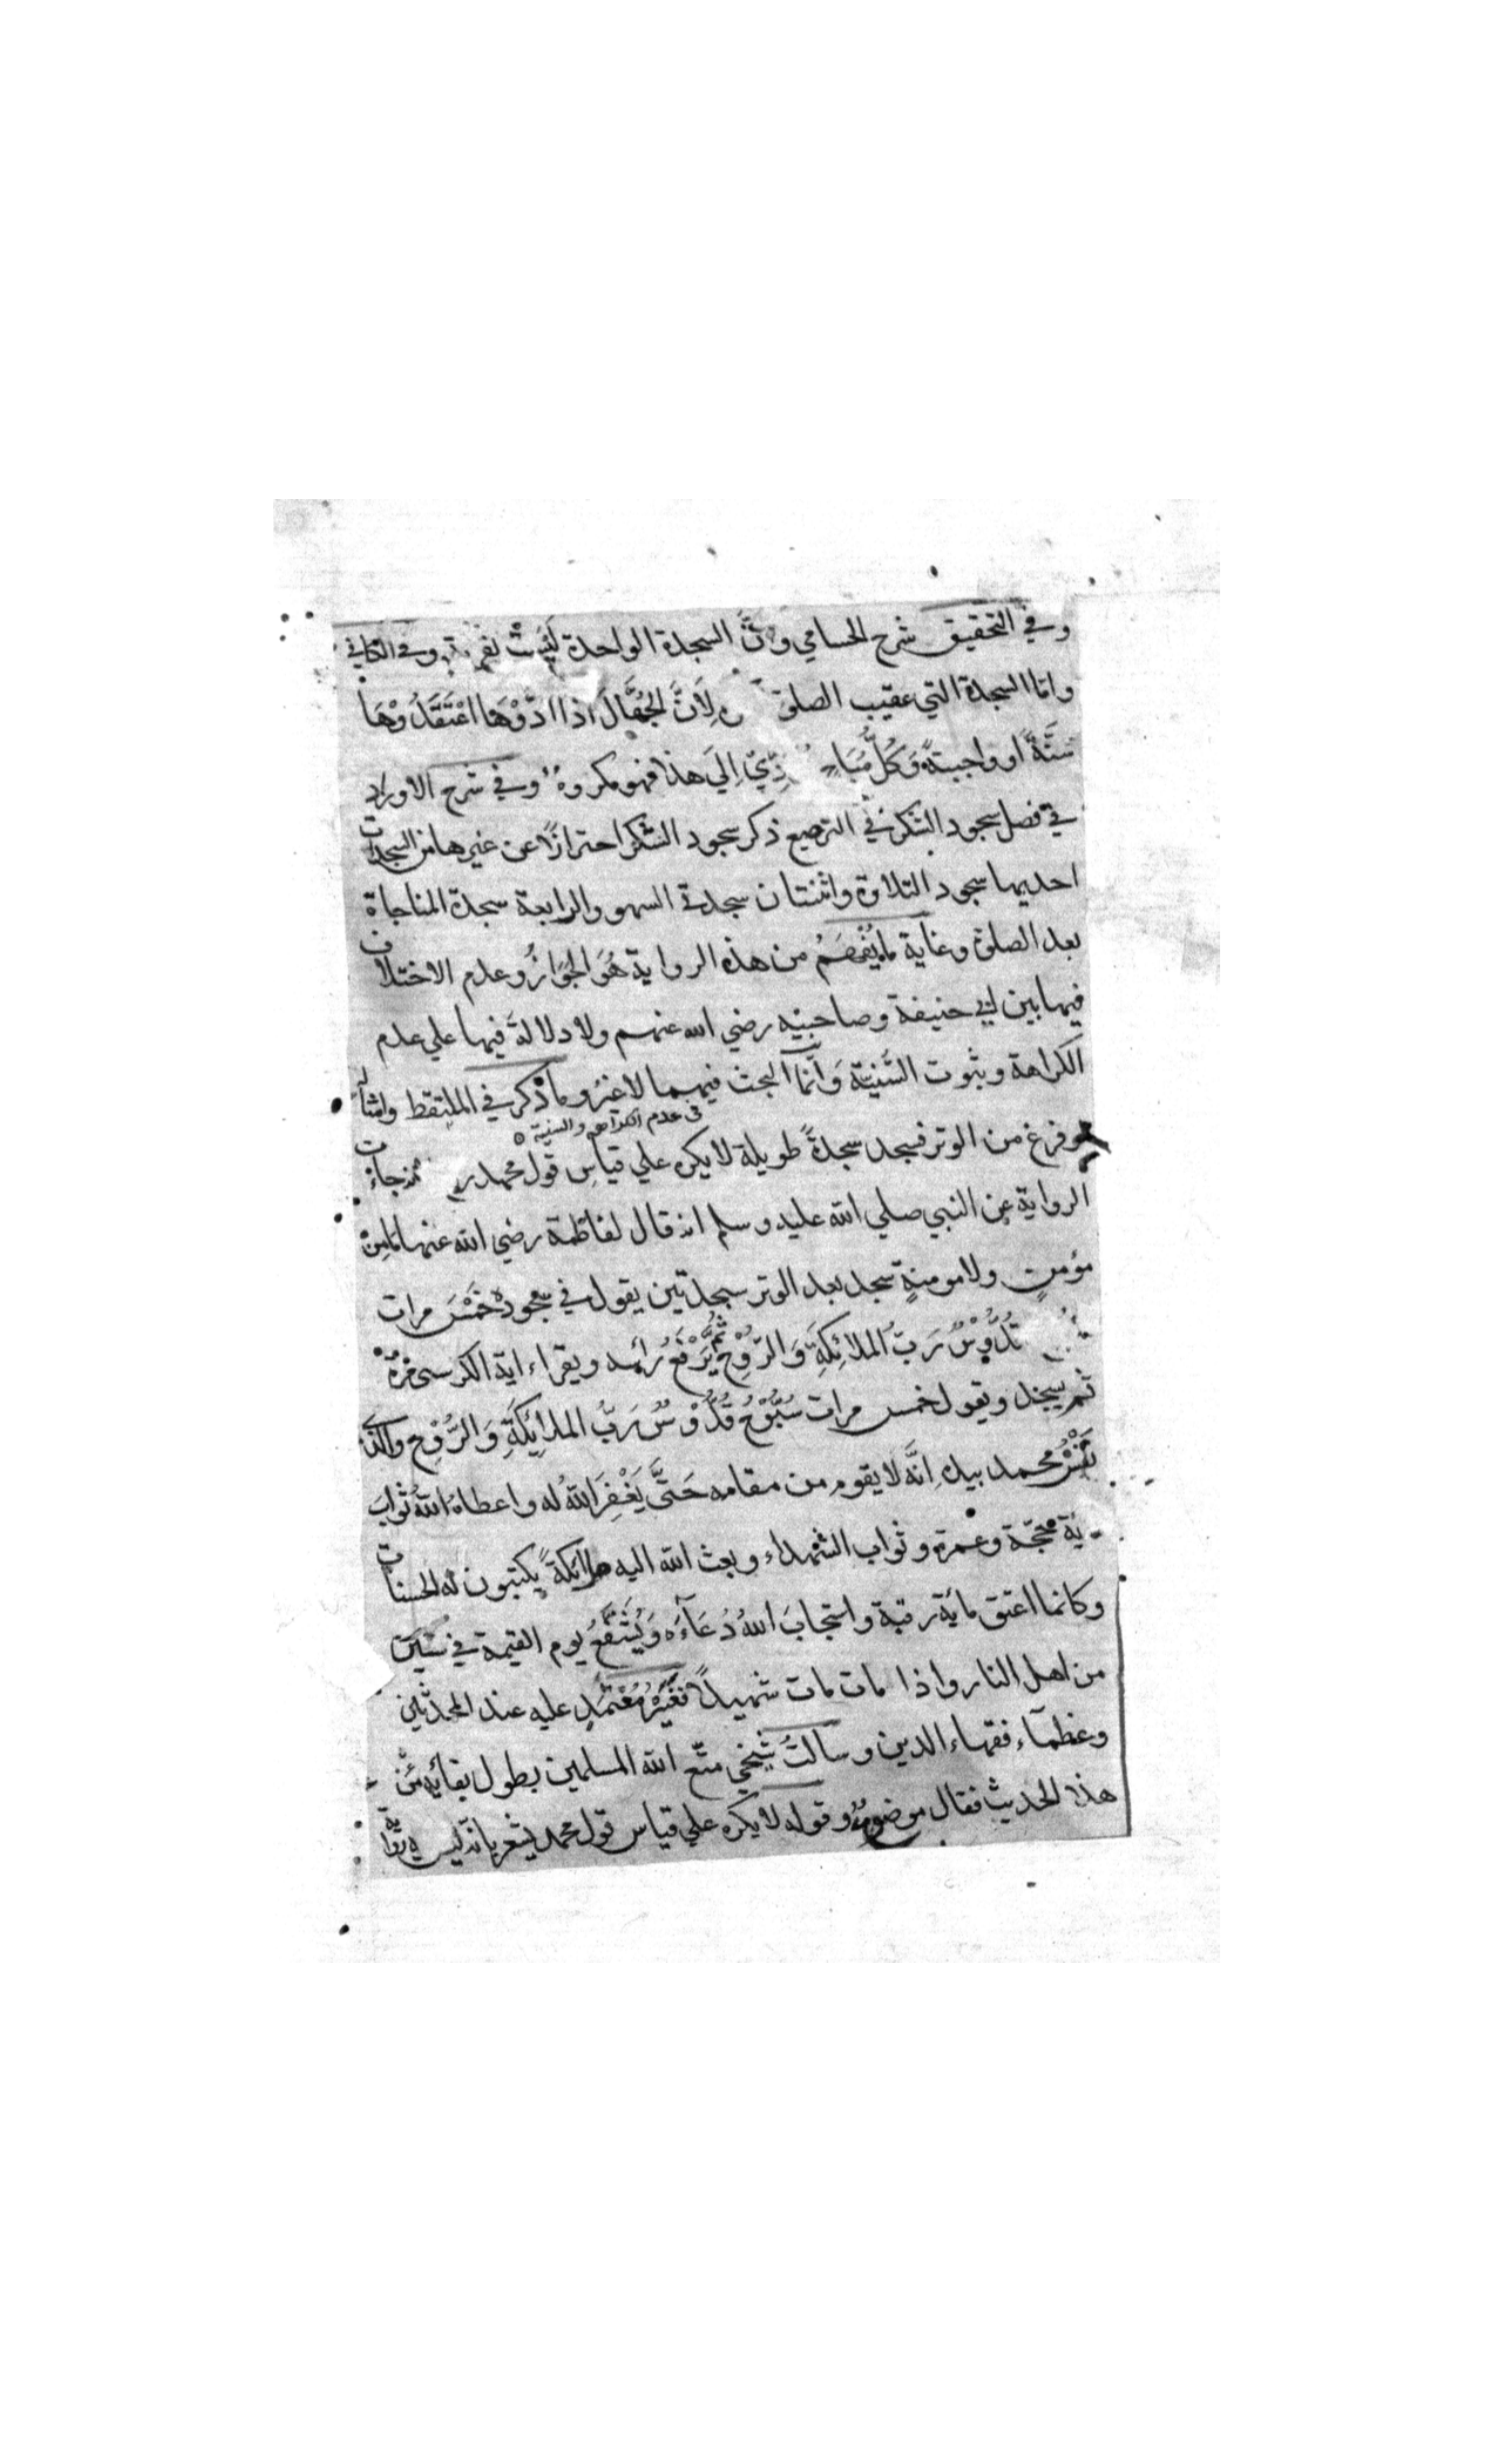 وفي التحقيق شرح الحسامي وانَّ السجدة الواحدة لَيْسَتْ بقربة وفي الكافي
وامّا السجدة التي عقيب الصلوة لِاَنَّ الجُهَّالَ اذا ادَّوْهَا اعْتَقَدُوْهَا
سُنَّةً او واجبةً وَكُلُّ مُبَاحٍ اِلَى هذا فهو مكروه وفي شرح الاوراد
في فصل سجود الشكر في الترصيع ذكر سجود الشكر احترازًا عن غيرها من السجدات
احديها سجود التلاوة واثنتان سجدتي السهو والرابعة سجدة المناجاة
بعد الصلوة وغاية ما يُفْهَمُ من هذه الرواية هُوَ الجَوَازُ وعدم الاختلاف
فيما بين ابي حنيفة وصاحبيه رضي الله عنهم ولا دلالة فيها علي عدم
الكراهة وثبوت السُّنِّيَّة وَانَّمَا البحث فيهما لا غيرُ وما ذُكر في الملتقط وامثاله
في عدم الكراهة والسنية
فرغ من الوتر فسجد سجدةً طويلة لا يكره علي قياس قول محمد جاءت
الرواية عن النبي صلي الله عليه وسلم انه قال لفاطمة رضي الله عنها مَامِنْ
مؤمنٍ ولا مومنةٍ سجد بعد الوتر سجدتين يقول في سجوده خَمْسَ مرات
قُدُّوْسٌ رَبُّ الملائِكَةِ وَالرُّوْحِ ثُمَّ يَرْفَعُ رأسه ويقراء اية الكرسي مرة
ثم يسجد ويقول خمس مرات سُبُّوْحٌ قُدُّوْسٌ رَبُّ الملائِكَةِ وَالرُّوْحِ والذي
نَفْسُ محمد بيده اِنَّه لا يقوم من مقامه حَتَّى يَغْفِرَ اللهُ له واعطاه اللهُ ثوابَ
حجّة وعمرة وثواب الشهداء وبعث الله اليه ملائكةً يكتبون له الحسنات
وكانما اعتق مائة رقبة واستجابَ اللهُ دُعَآءَه وَيُشَفَّعُ يوم القيمة في ستين
من اهل النار واذا مات مات شهيدًا فَغَيْرُ مُعْتَمَدٍ عليه عند المحدثين
وعظمآء فقهاء الدين وسالتُ شيخي متّع الله المسلمين بطول بقائه عَنْ
هذا الحديث فقال موضوعٌ وقوله لا يكره علي قياس قول محمد يشعر بانه ليس فيه رواية